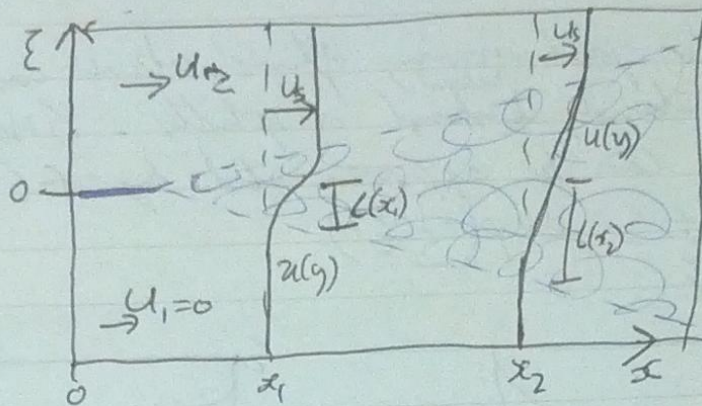 ξ
→ U₂
Uₛ
Uₛ
u(y)
0
ℓ(x₁)
u(y)
ℓ(x₂)
→ U₁=0
0
x₁
x₂
x